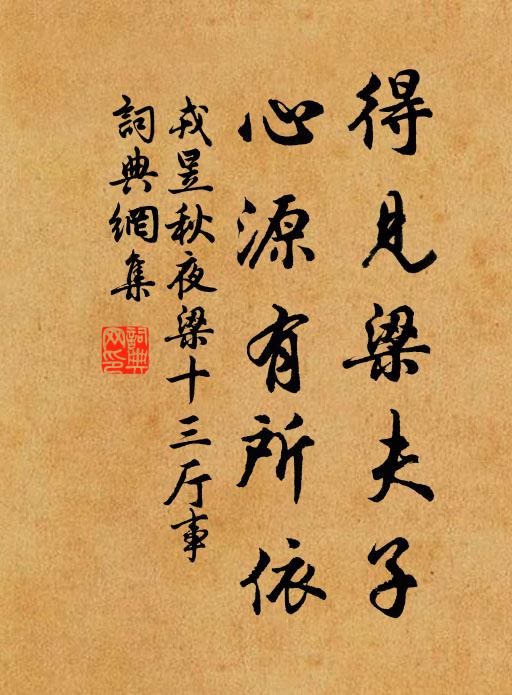 得见梁夫子
心源有所依
戎昱秋夜梁十三厅事
詞典網集
詞典网印